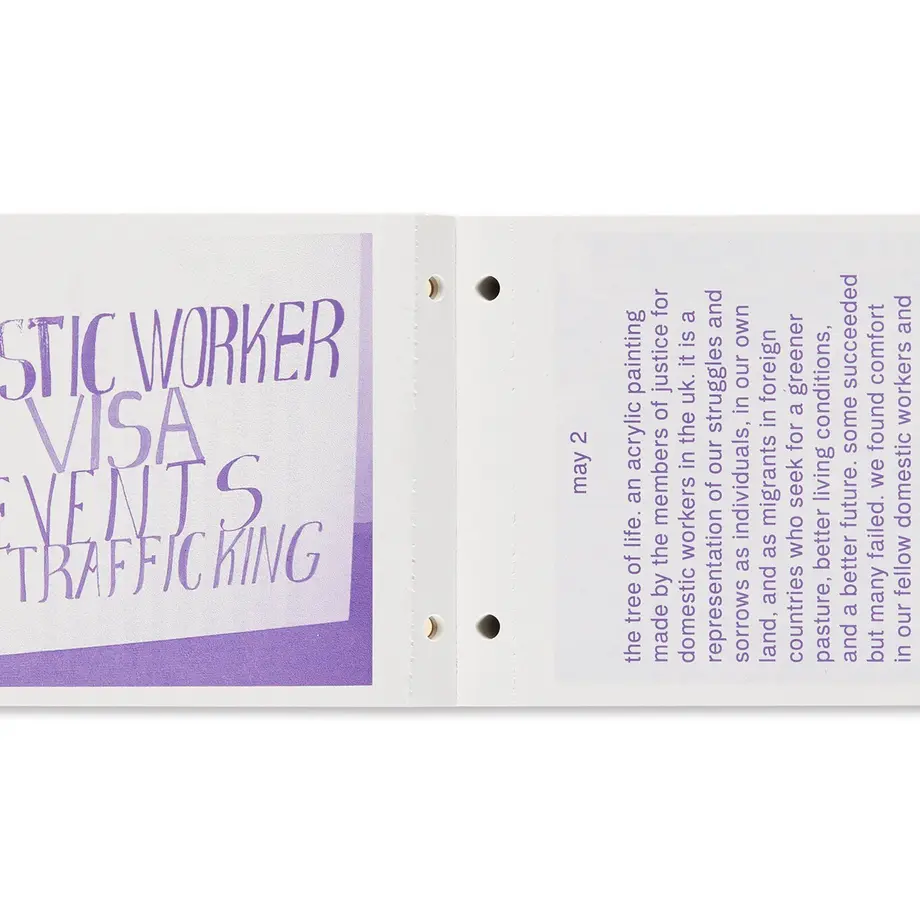 STIC WORKER
VISA
EVENTS
TRAFFICKING
may 2
the tree of life. an acrylic painting
made by the members of justice for
domestic workers in the uk. it is a
representation of our struggles and
sorrows as individuals, in our own
land, and as migrants in foreign
countries who seek for a greener
pasture, better living conditions,
and a better future. some succeeded
but many failed. we found comfort
in our fellow domestic workers and